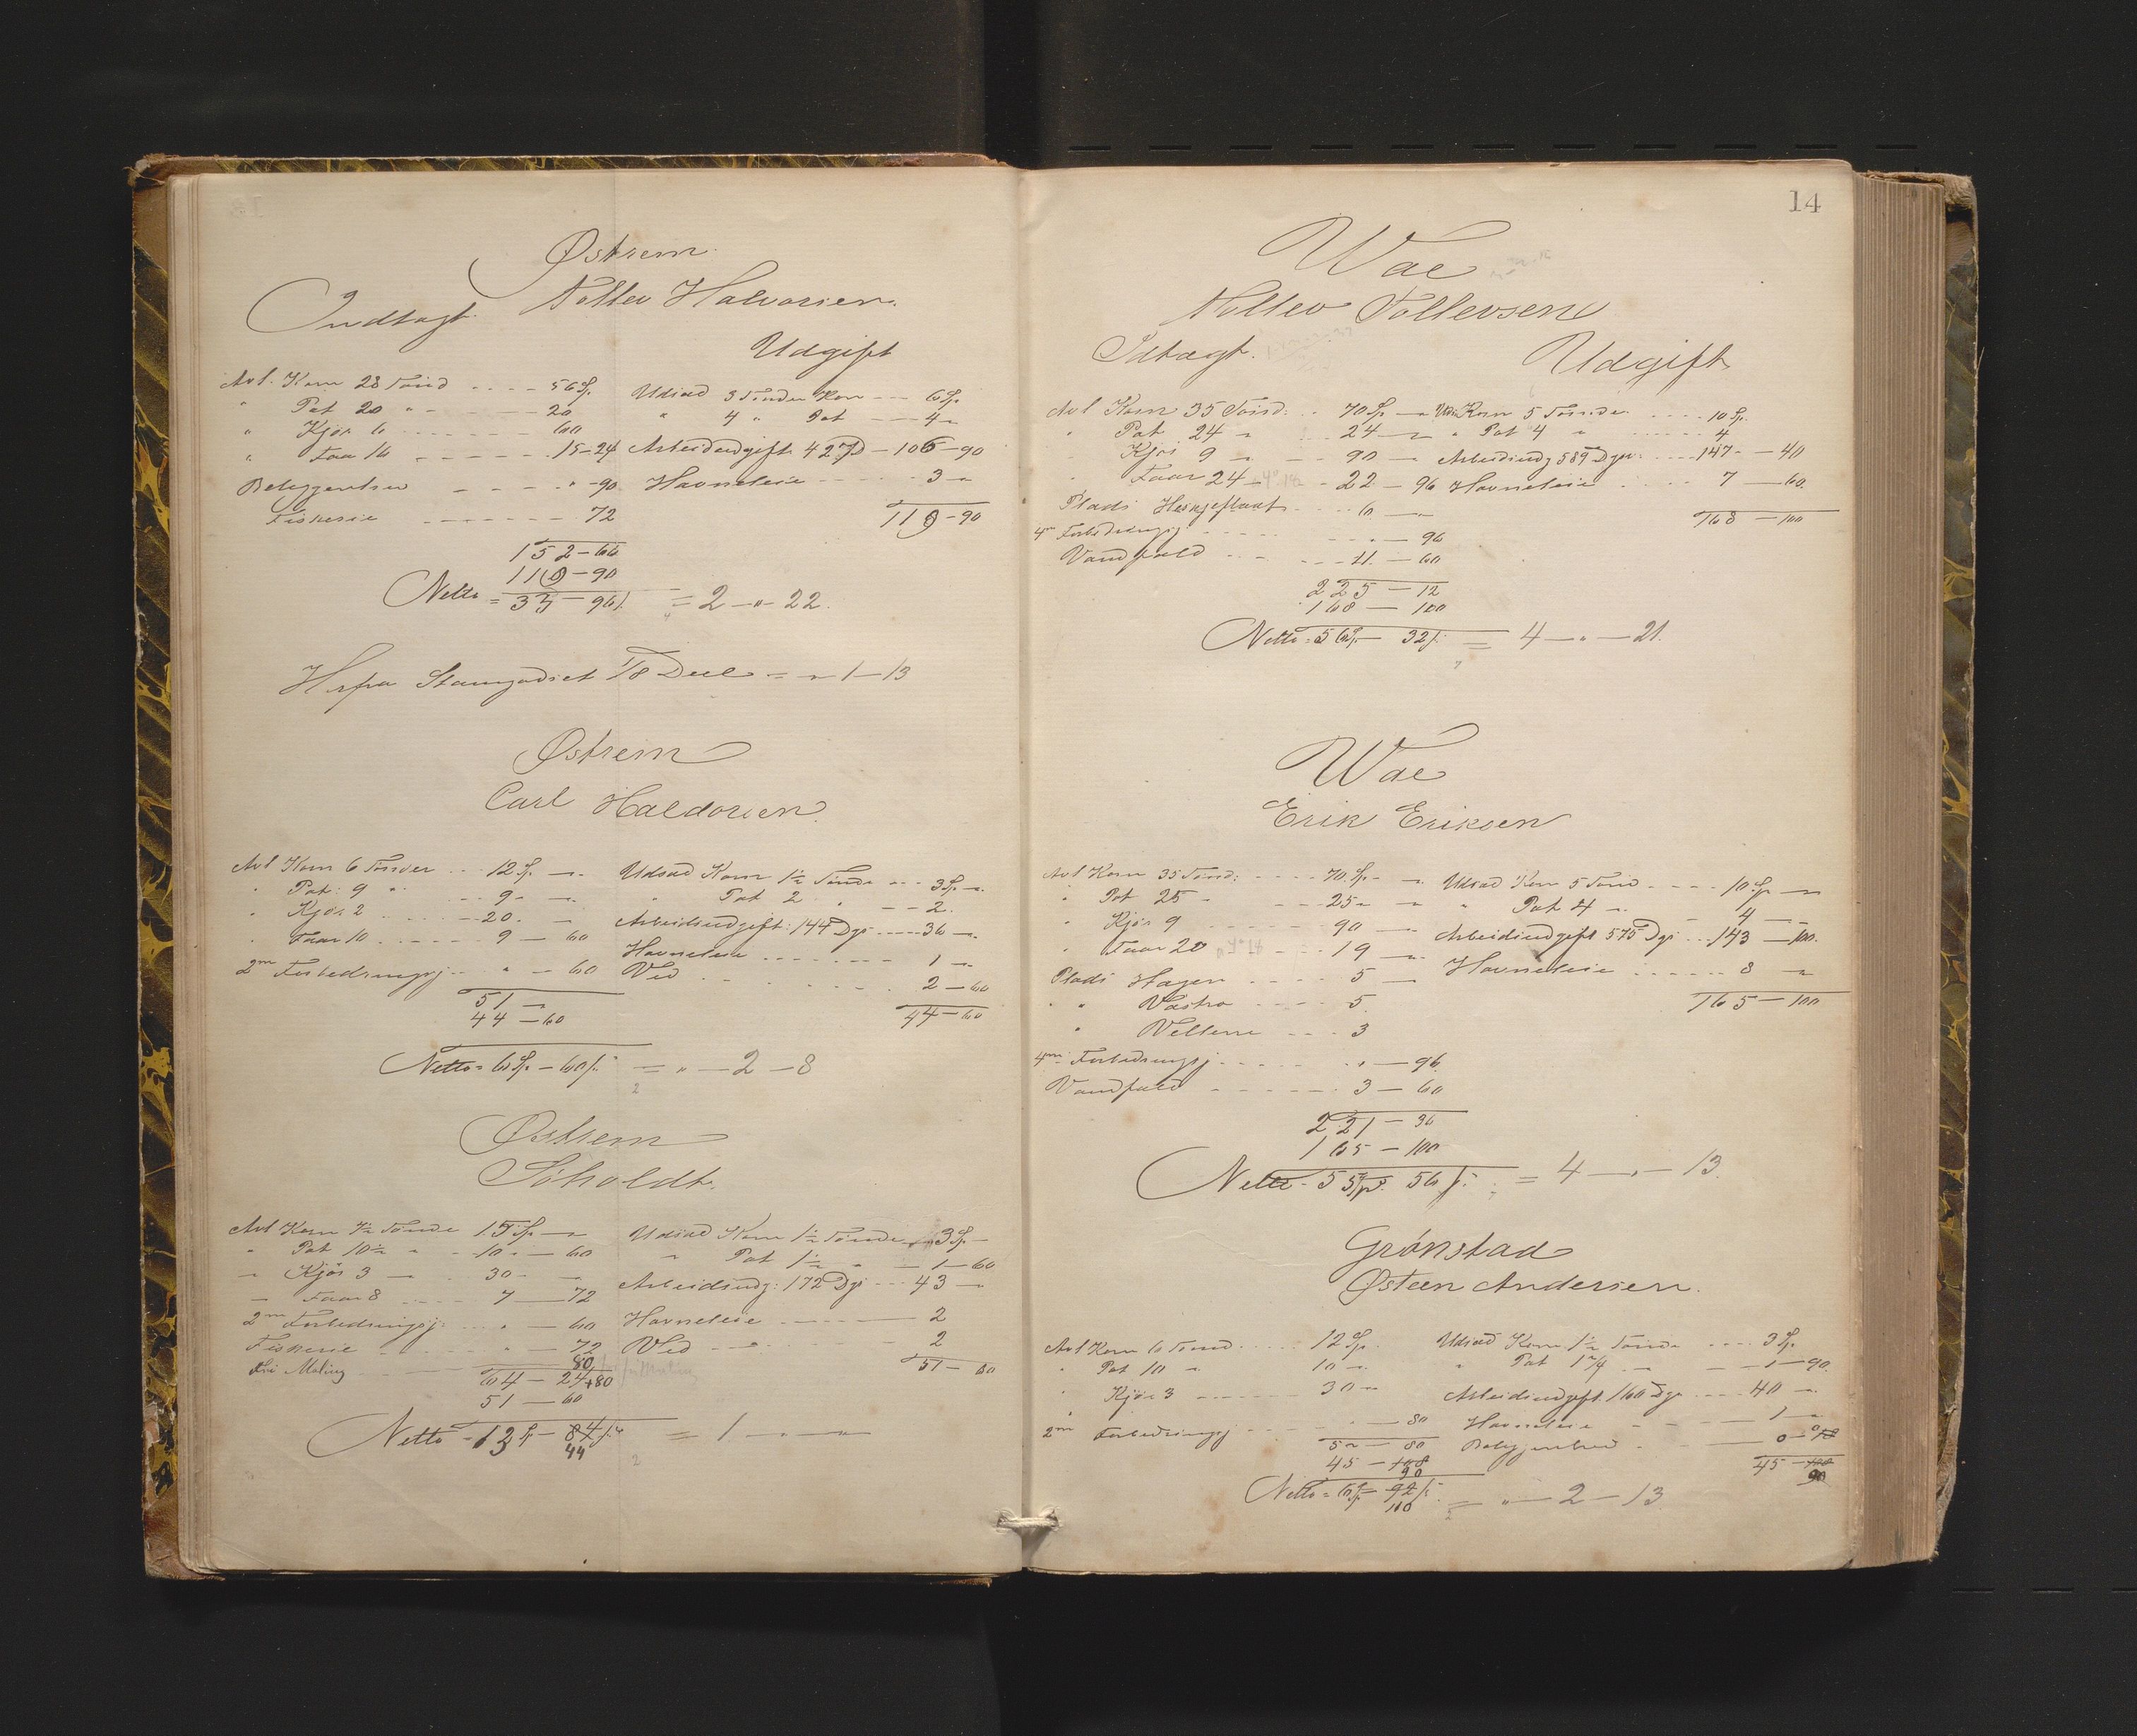 Østrem
Tollev Halvorsen.
Indtægt.
Udgift
Avl. Korn 28 Tønd - - - - 56 Sp. Udsæd 3 Tønder Korn - - - 6 Sp.
" Pot 20 " - - - - 20 " 4 " Pot - - 4 -
" Kjør 6 - - - - - - 60
" Faar 16 - - - - - - 15-24 Arbeidsudgift 427 D - 106-90
Beliggenhed - - - - " -90 Havneleie - - - - - 3 -
Fiskerie - - - - - - - 72 119-90
152-66
119-90
Netto = 33-96 /. = 2 - " - 22.
Herfra Stamgodset 1/8 Deel = " 1-13
Østrem
Carl Haldorsen
Avl Korn 6 Tønder - - 12 Sp. - Udsæd Korn 1½ Tønde - - - 3 Sp. -
" Pot: 9 " - - - 9 - " Pot 2 " - - 2.
" Kjør 2 - - - - 20. - Arbeidsudgift: 144 Dgr - - - 36 -
" Faar 10 - - - - - 9 - 60 Havneleie - - - - - - - 1 -
2m Forbedringsj - - " - 60 Ved - - - - - - - 2 - 60
51 -
44 - 60 44 - 60
Netto = 6 Sp. - 60 /. = " - 2 - 8
2
Østrem
Søholdt.
Avl Korn 7½ Tønde 15 Sp. - Udsæd Korn 1½ Tønde 3 Sp -
" Pot 10½ " - 10 " - 60 " Pot 1½ " - 1 - 60
" Kjör 3 - 30 - - Arbeidsudg: 172 Dgr - - 43 -
- Faar 8 - - - 7 - 72
2m Forbedringsj - - - " - 60 Havneleie - - - - 2
Fiskerie - - - - " - 72 Ved - - - 2
Fri Maling - - 80 51 - 60
64 - 24 + 80
51 - 60
Netto - 13 Sp - 84 /. = 1 - " -
44
2
14
Wae
Tollev Tollevsen
Idtægt.
Udgift
Avl Korn 35 Tönd: - - 70 Sp - Uds Korn 5 Tønde - - - - 10 Sp.
" Pot 24 " - - - 24 - " Pot 4 " - - - - 4
Kjør 9 - - - 90 - Arbeidsudg 589 Dgr - - - 147 - 40
" Faar 24 - - 22 - 96 Havneleie - - - - - 7 - 60
Plads Heskjeflaat - - - - 6 - 168 - 100
4m Forbedringsj - - - - " - 96
Vandfald - - - - - 11 - 60
225 - 12
168 - 100
Netto = 56 Sp - 32 /. = 4 - " - 21.
Wae
Erik Eriksen
Avl Korn 35 Tönd: - - - - 70 Sp. - Udsæd Korn 5 Tønd - - - - 10 Sp -
" Pot 25 - - - - 25 " - " Pot 4 - - 4 -
" Kjør 9 - - - - - 90 - Arbeidsudgift 575 Dgr - - 143 - 100.
" Faar 20 - - - 19 - Havneleie - - - - - - 8 -
Plads Hagen - - - - 5 - 165 - 100
" " Wastra - - - - 5.
" Vellene - - - 3
4m Forbedringsj - - - - - " - 96
Vandfald - - - - - - - 3 - 60
221 - 36
165 - 100
Netto - 55 Sp. 56 /. = 4 - " - 13.
Grønstad
Østeen Andersen.
Avl Korn 6 Tønd - - - - 12 Sp. Udsæd Korn 1½ Tønde - - - - 3 Sp.
" Pot 10 " - - - - 10 - " Pot 1¾ - - - 1 - 90
" Kjør 3 - - - - - - 30 - Arbeidsudgift 160 Dgr - - - - 40 -
2m Forbedringsj - - - " - 80 Havneleie - - - - 1 -
52 - 80 Beliggenhed - - - 0 - 018
45 - 108 45 - 108
90 90
Netto = 6 Sp - 92 /. = " - 2 - 13
110
2